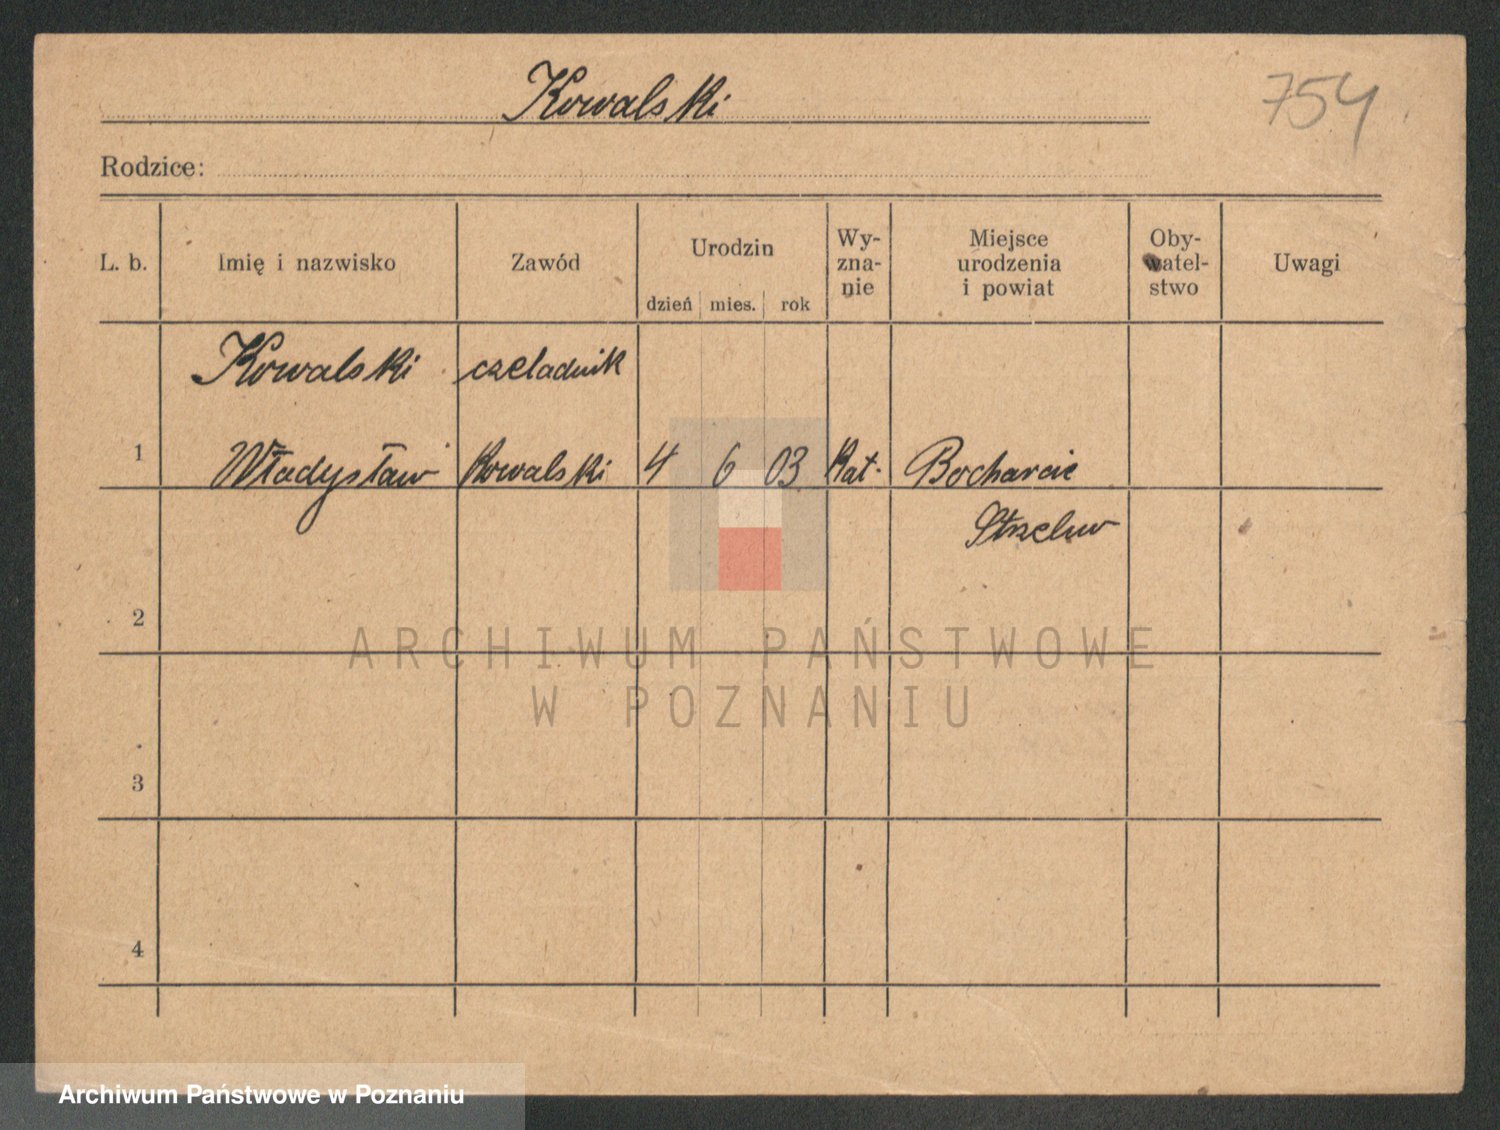 Kowalski
754
Rodzice:
L. b.
Imię i nazwisko
Zawód
Urodzin
dzień mies. rok
Wy-
zna-
nie
Miejsce
urodzenia
i powiat
Oby-
watel-
stwo
Uwagi
Kowalski czeladnik
1 Władysław Kowalski 4 6 03 Kat. Bocharcie
Strzelno
2
3
4
ARCHIWUM PAŃSTWOWE
W POZNANIU
Archiwum Państwowe w Poznaniu